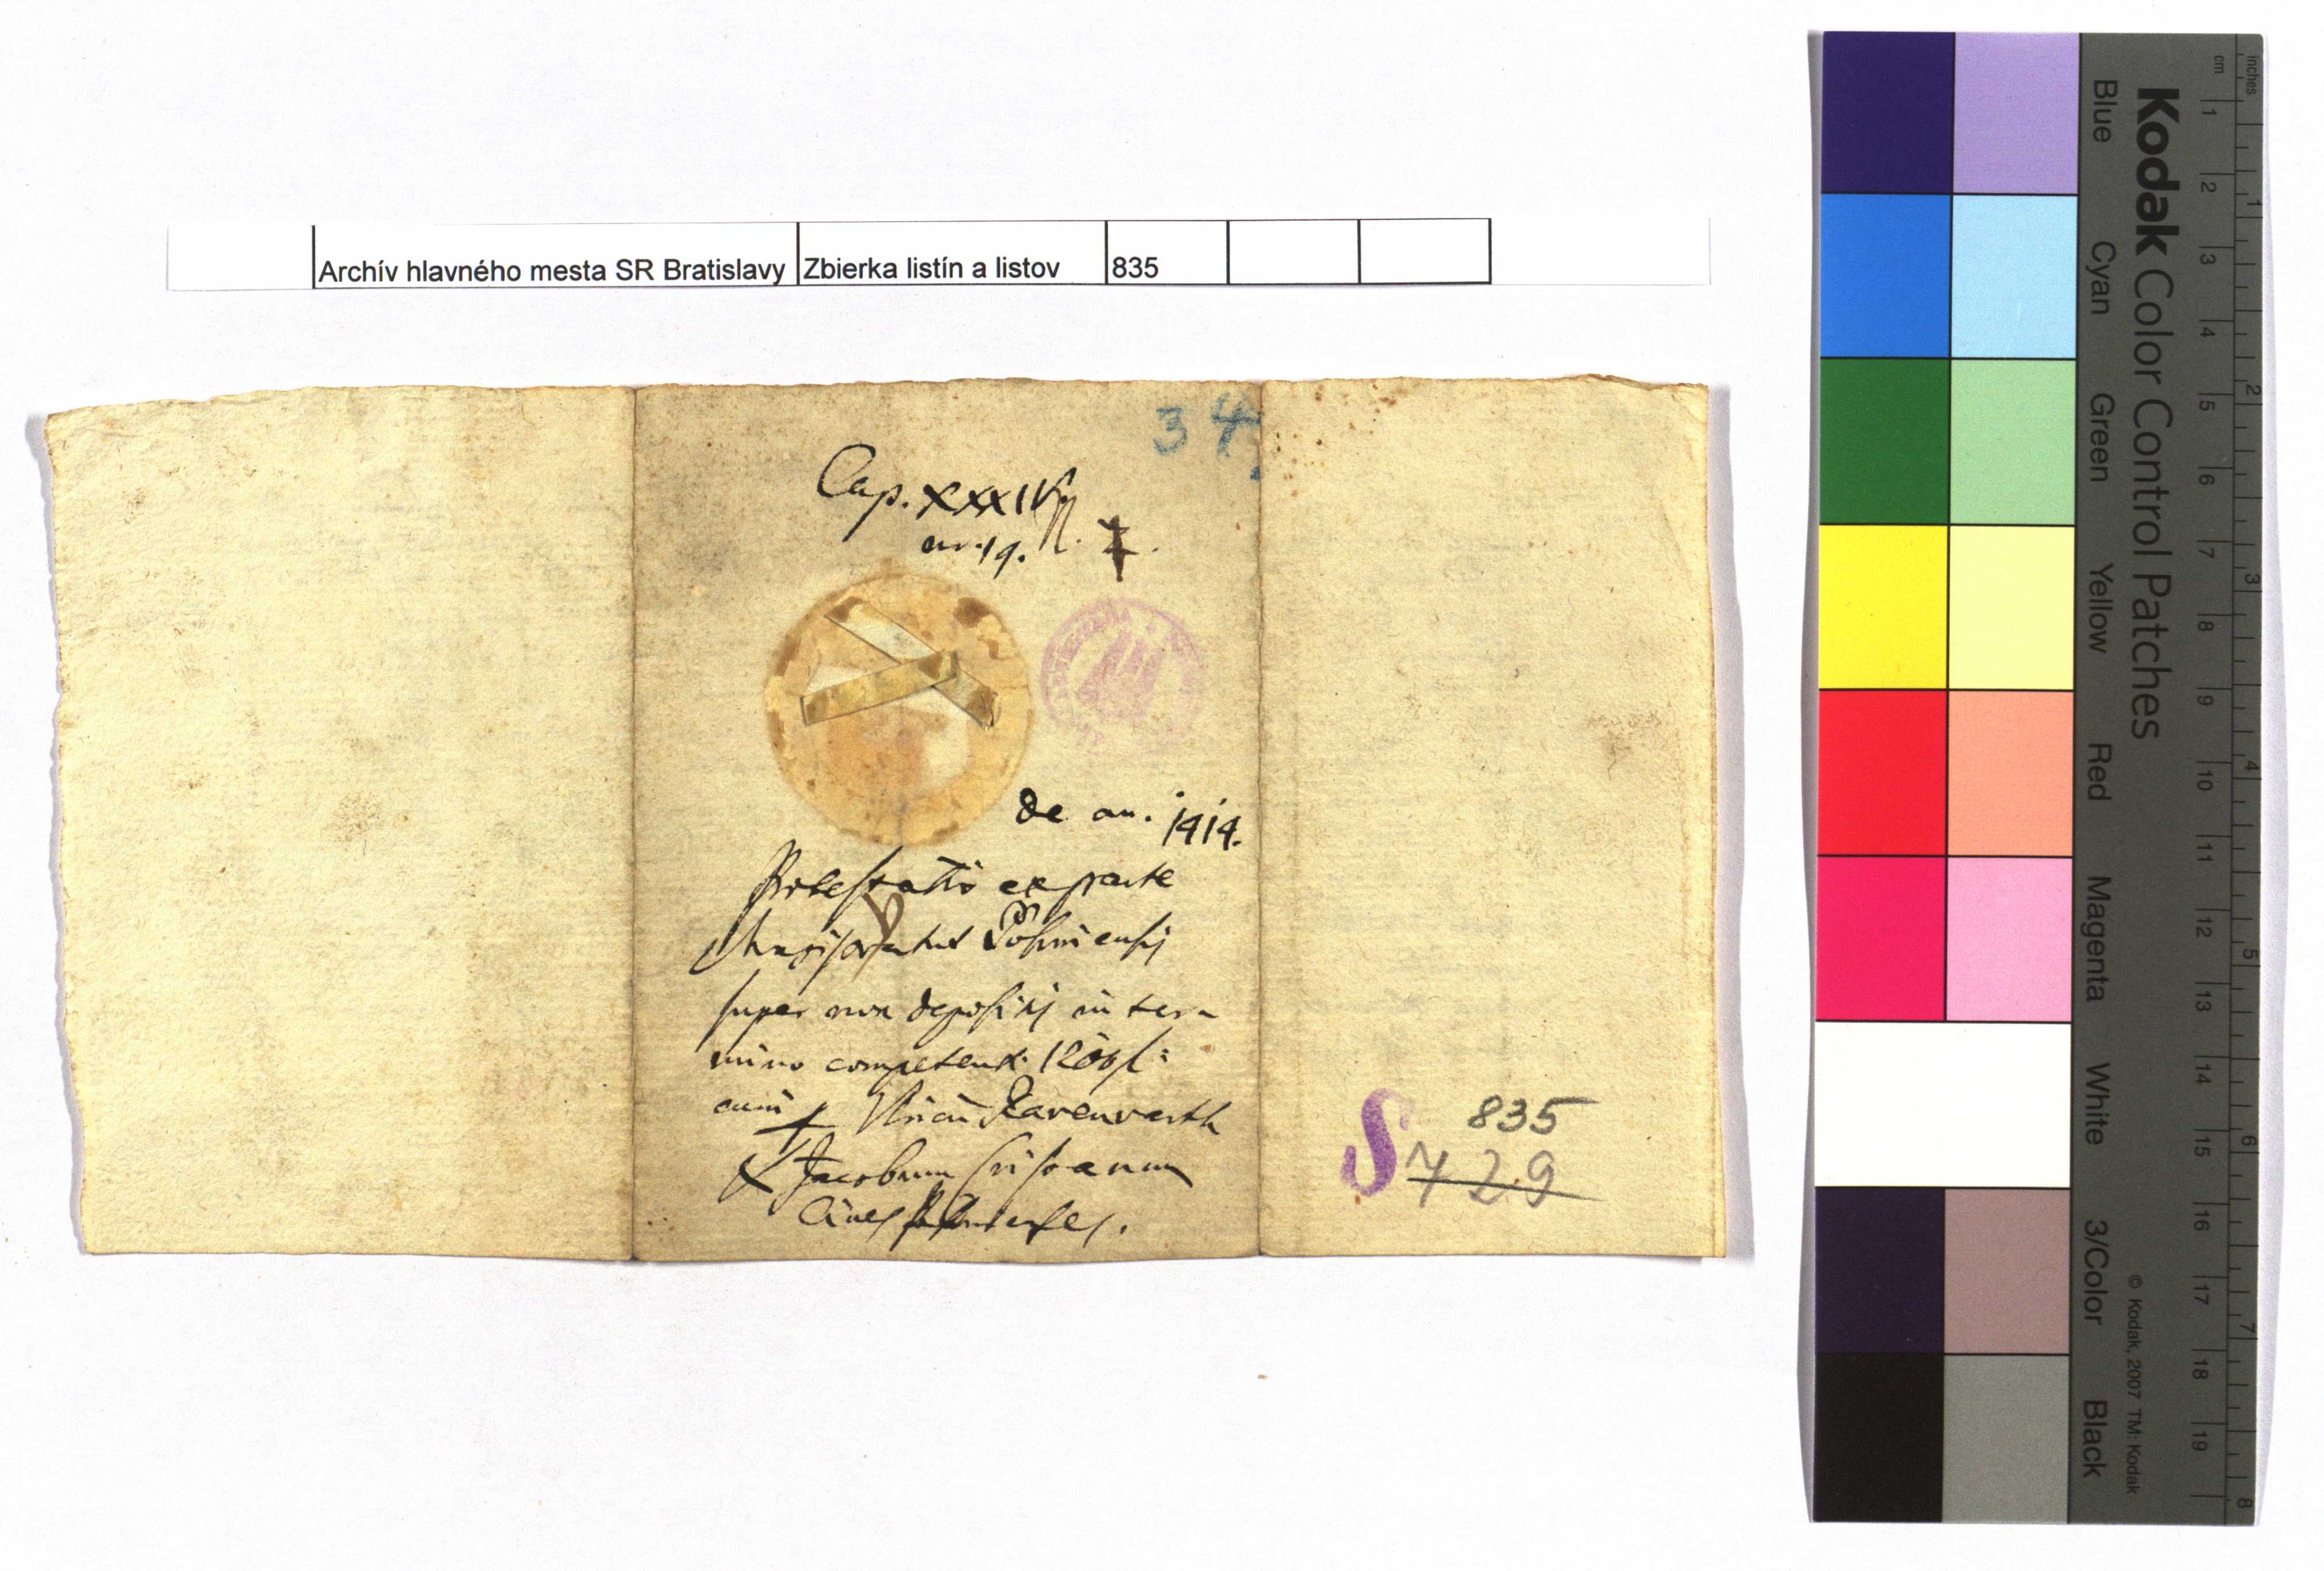 Archív hlavného mesta SR Bratislavy Zbierka listín a listov 835
34
Cap. XXXIV
nr. 19. N. 7.
de an. 1414.
Protestatio ex parte
Magistratus Posoniensis
super non depositis in ter-
mino competenti 1200 fl:
cum Ravenvarth
& Jacobum
Cives Posonienses.
835
S 729
Kodak Color Control Patches
Blue Cyan Green Yellow Red Magenta White 3/Color Black
© Kodak, 2007 TM: Kodak
cm 1 2 3 4 5 6 7 8 9 10 11 12 13 14 15 16 17 18 19
inches 1 2 3 4 5 6 7 8